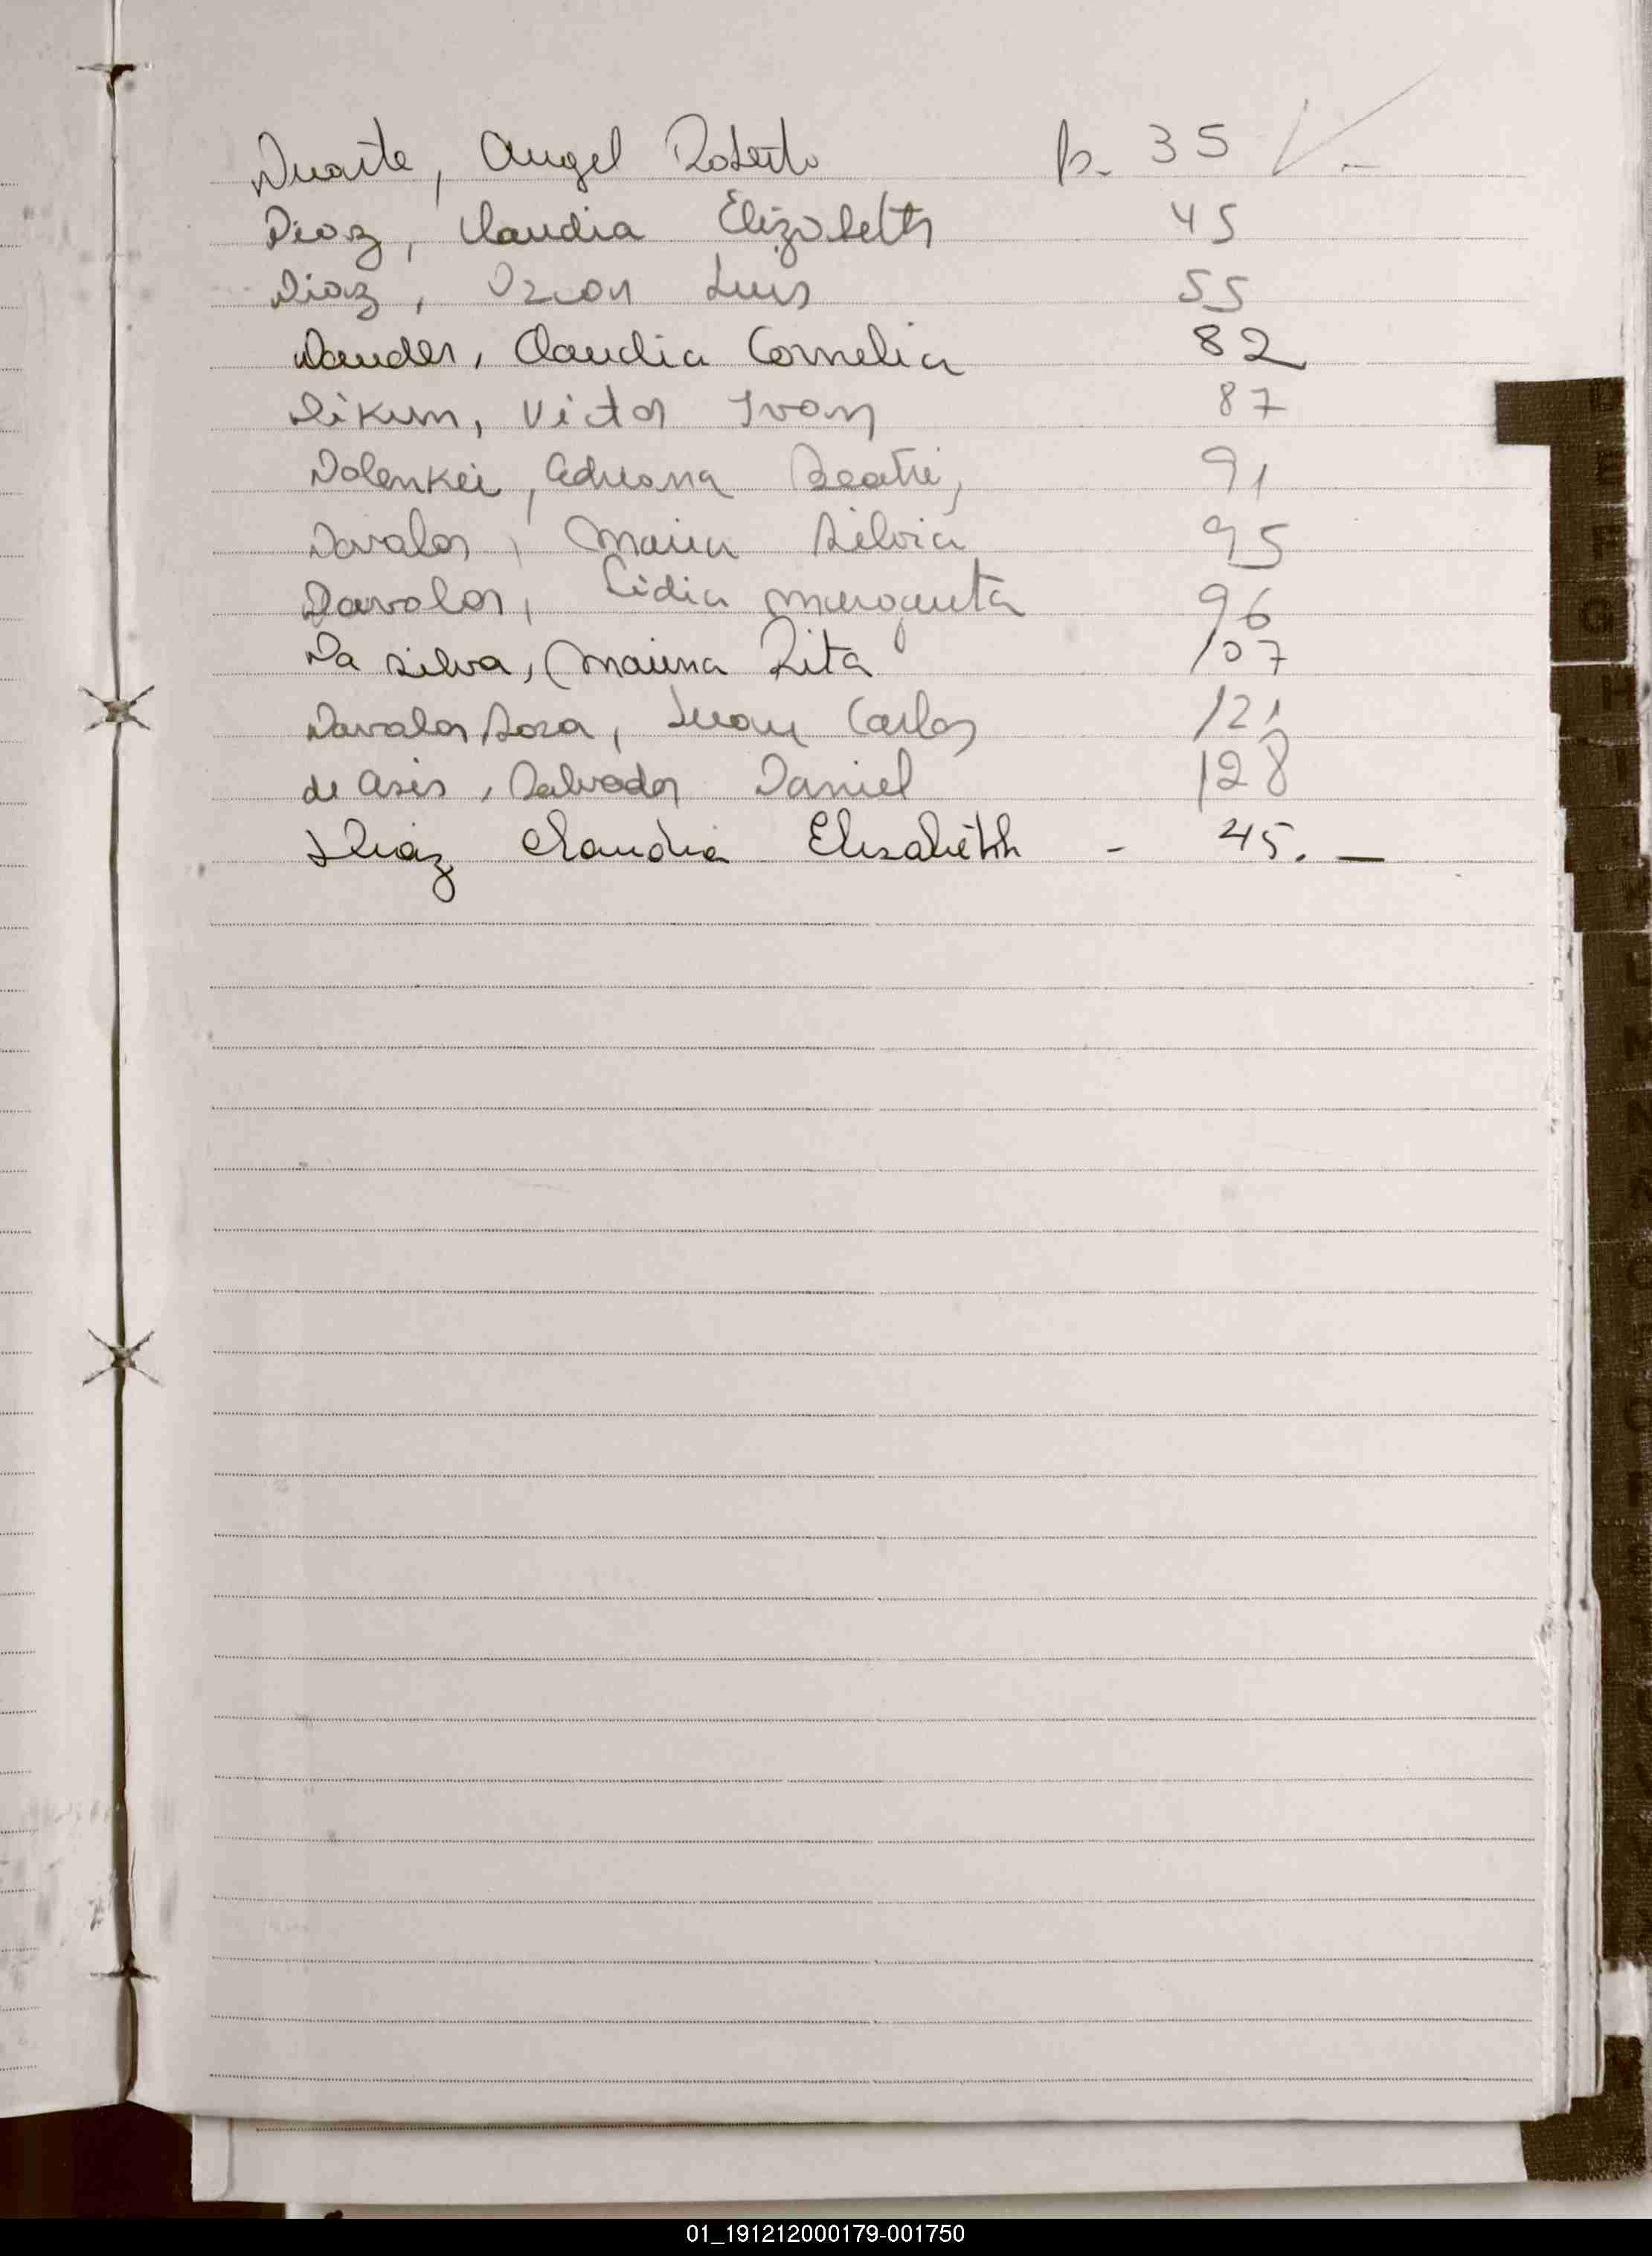 Duarte, Angel Roberto p. 35
Diaz, Claudia Elizabeth 45
Diaz, Oscar Luis 55
Dander, Claudia Cornelia 82
Dikum, Victor Ivan 87
Dolenkei, Adriana Beatri, 91
Davalos, Maria Silvia 95
Davalos, Lidia Margarita 96
Da Silva, Marina Rita 107
Davalos Sosa, Juan Carlos 121
de Asis, Salvador Daniel 128
Diaz Claudia Elisabethh - 45. —
D
E
F
G
H
I
J
K
L
M
N
01_191212000179-001750